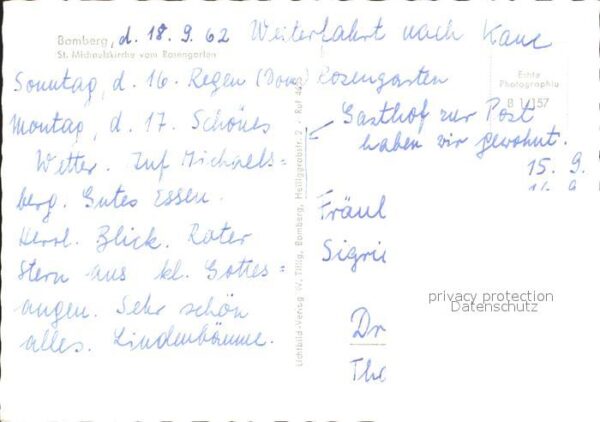 Bamberg, d. 18. 9. 62 Weiterfahrt nach
St. Michaelskirche vom Rosengarten
Sonntag, d. 16. Regen (Dom, Rosengarten
Montag, d. 17. Schönes
Wetter. Auf Michaels=
berg. Gutes Essen.
Herrl. Blick. Roter
Stern aus kl. Gottes=
augen. Sehr schön
alles. Lindenbäume.
Echte
Photographie
B 1/157
Gasthof zur Post
haben wir gewohnt.
15. 9.
Lichtbild-Verlag W. Tillig, Bamberg, Heiliggrabstr. 2 - Ruf
Fräul
Sigri
Dr
The
privacy protection
Datenschutz